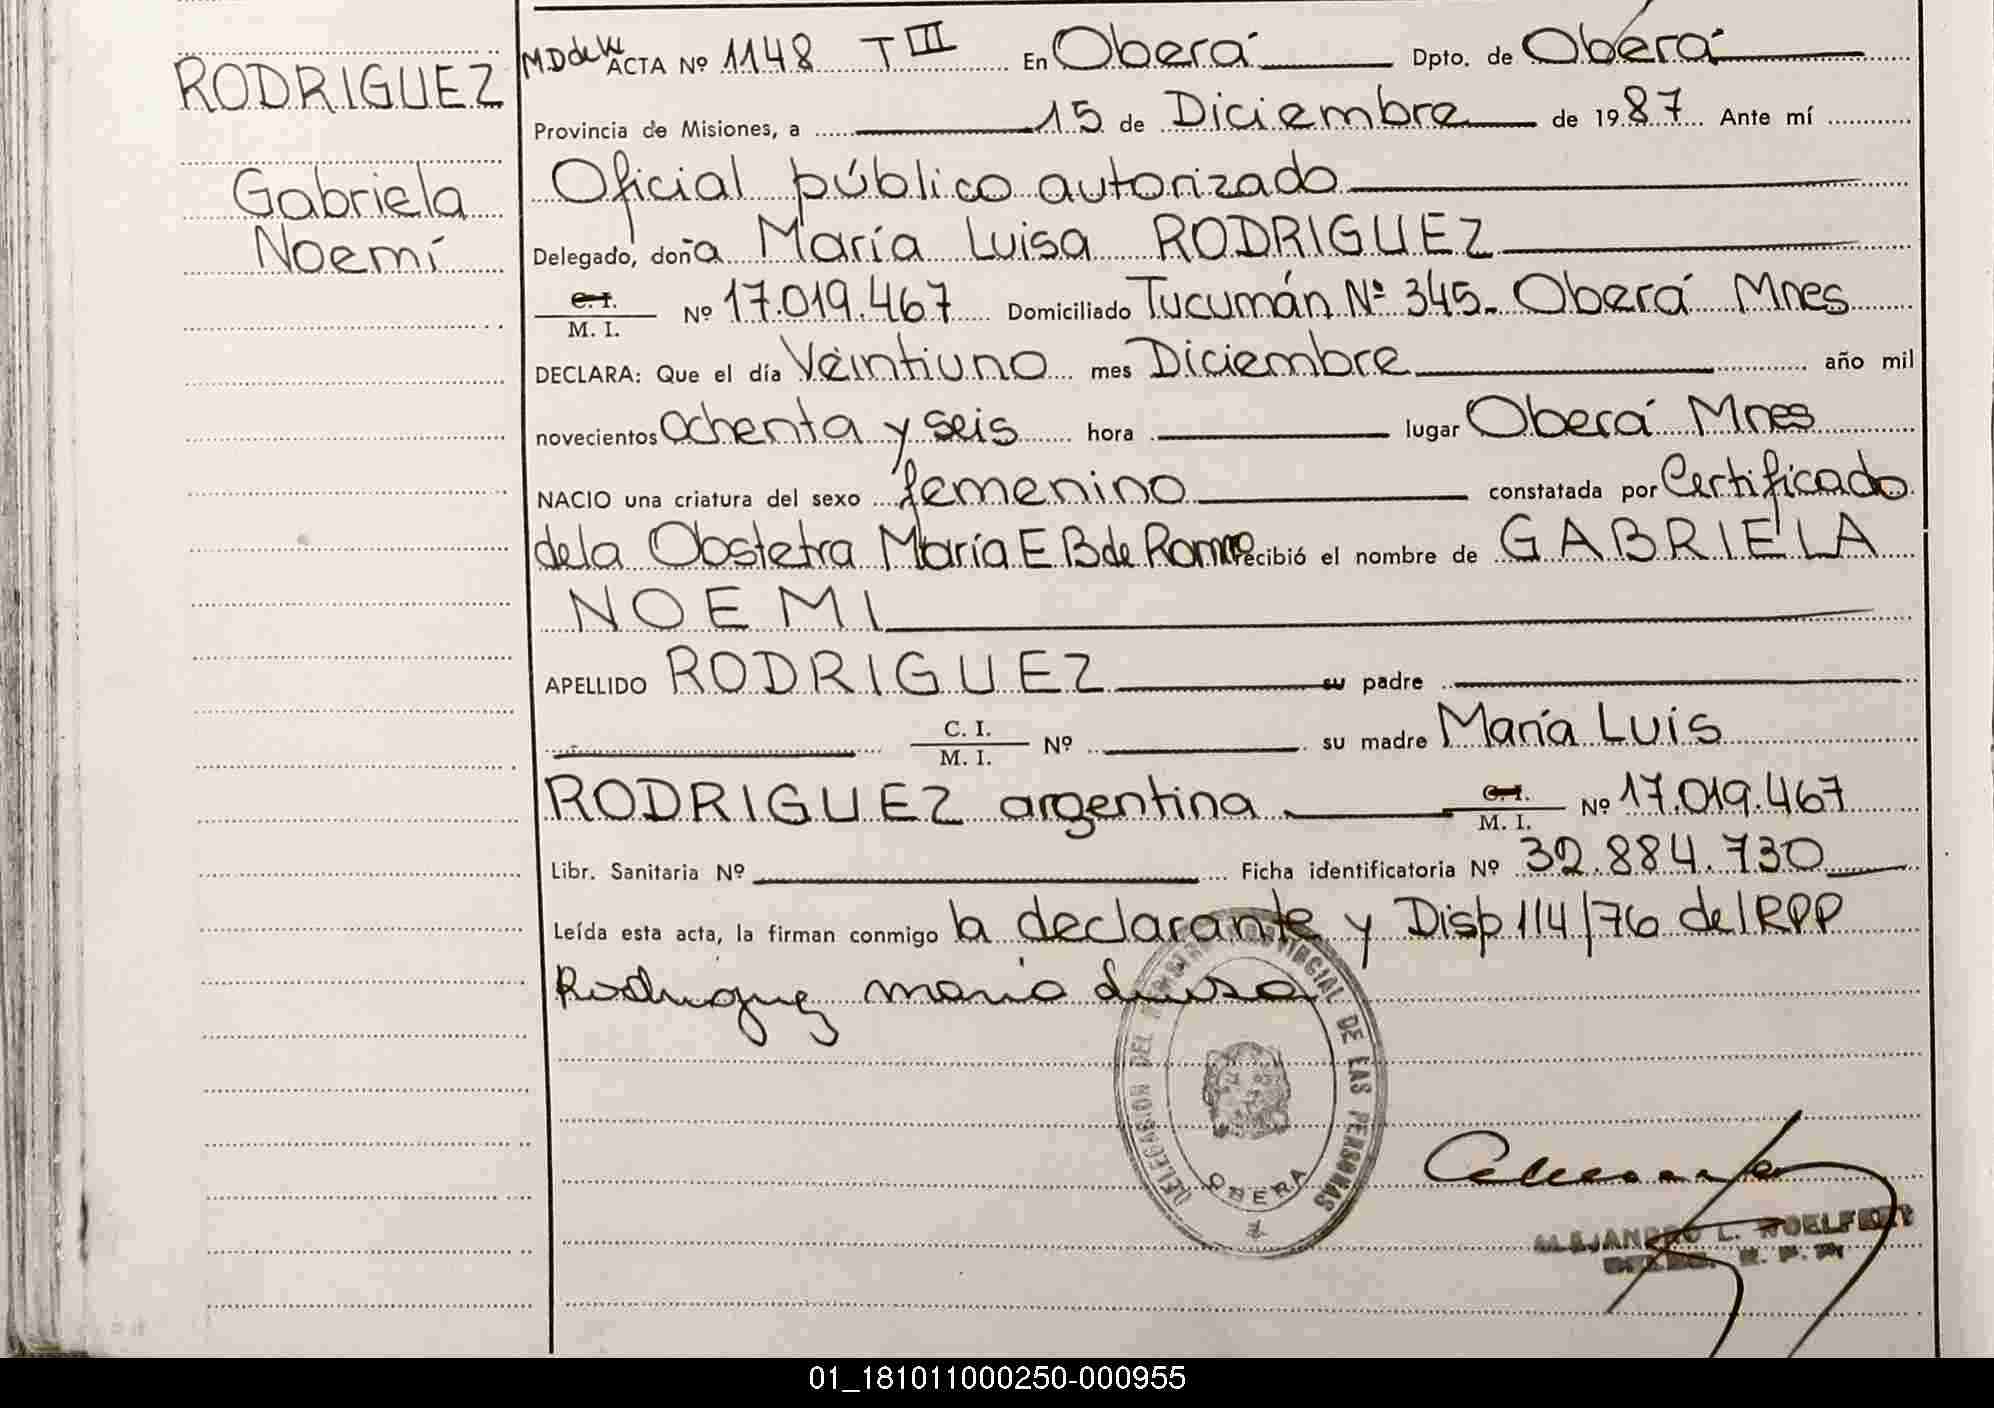 RODRIGUEZ
Gabriela
Noemí
MDdeW ACTA Nº 1148 T III En Oberá Dpto. de Oberá
Provincia de Misiones, a 15 de Diciembre de 1987 Ante mí
Oficial público autorizado
Delegado, doña María Luisa RODRIGUEZ
C. I.
M. I. Nº 17.019.467 Domiciliado Tucumán Nº 345. Oberá Mnes
DECLARA: Que el día Veintiuno mes Diciembre año mil
novecientos ochenta y seis hora lugar Oberá Mnes
NACIO una criatura del sexo femenino constatada por Certificado
de la Obstetra María E B de Romero recibió el nombre de GABRIELA
NOEMI
APELLIDO RODRIGUEZ su padre
C. I.
M. I. Nº su madre María Luis
RODRIGUEZ argentina C. I.
M. I. Nº 17.019.467
Libr. Sanitaria Nº Ficha identificatoria Nº 32.884.730
Leída esta acta, la firman conmigo la declarante y Disp 114/76 del RPP
Rodriguez maria Luisa
DELEGACION DEL REGISTRO PROVINCIAL DE LAS PERSONAS
OBERA
ALEJANDRO L.
R. P. P.
01_181011000250-000955